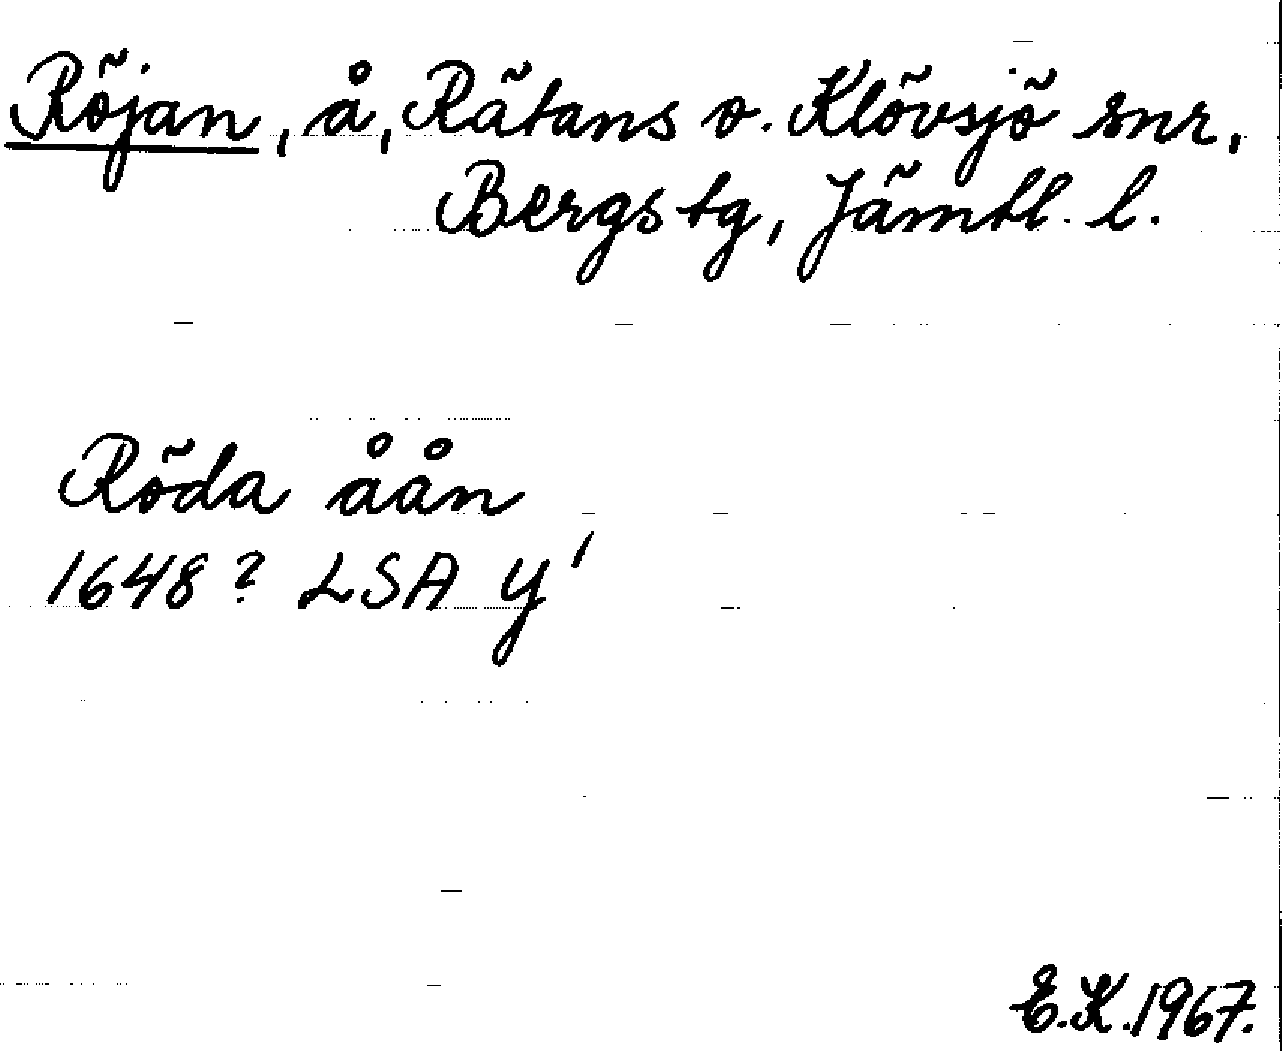 Röjan, å, Rätans o. Klövsjö snr,
Bergs tg, Jämtl. l.
Röda åån
1648? LSA Y'
E.K. 1967.